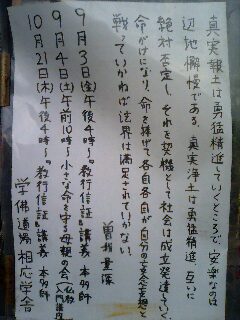 真実報土は勇猛精進していくところで、安楽なのは
辺地懈慢である。真実浄土は勇猛精進、互いに
絶対否定し、それを契機として社会は成立発達していく。
命がけになり、命を捧げて各自各自が自分の妄念妄想と
戦っていかねば法界は満足されていかない。
曽我量深
9月3日(金)午後4時〜『教行信証』講義 本多師
9月4日(土)午前10時〜小さな命を守る母親の会(仏教入門講座)
10月21日(木)午後4時〜『教行信証』講義 本多師
学佛道場 相応学舎